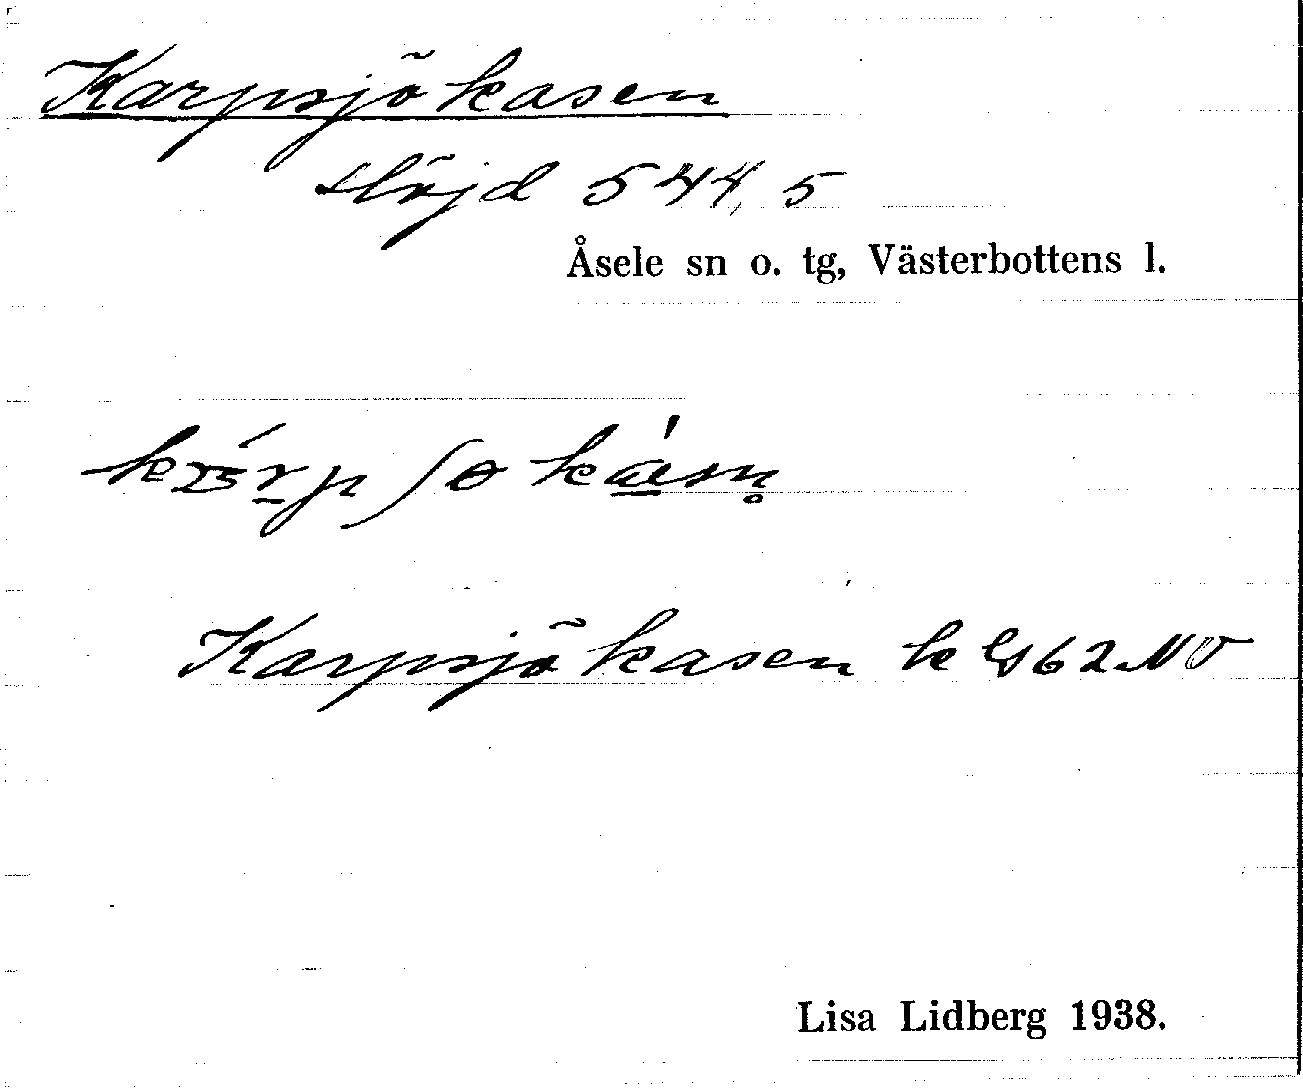 Karpsjökasen
Höjd 544,5
Åsele sn o. tg, Västerbottens l.
Karpsjökasen k Gs 62 NV
Lisa Lidberg 1938.